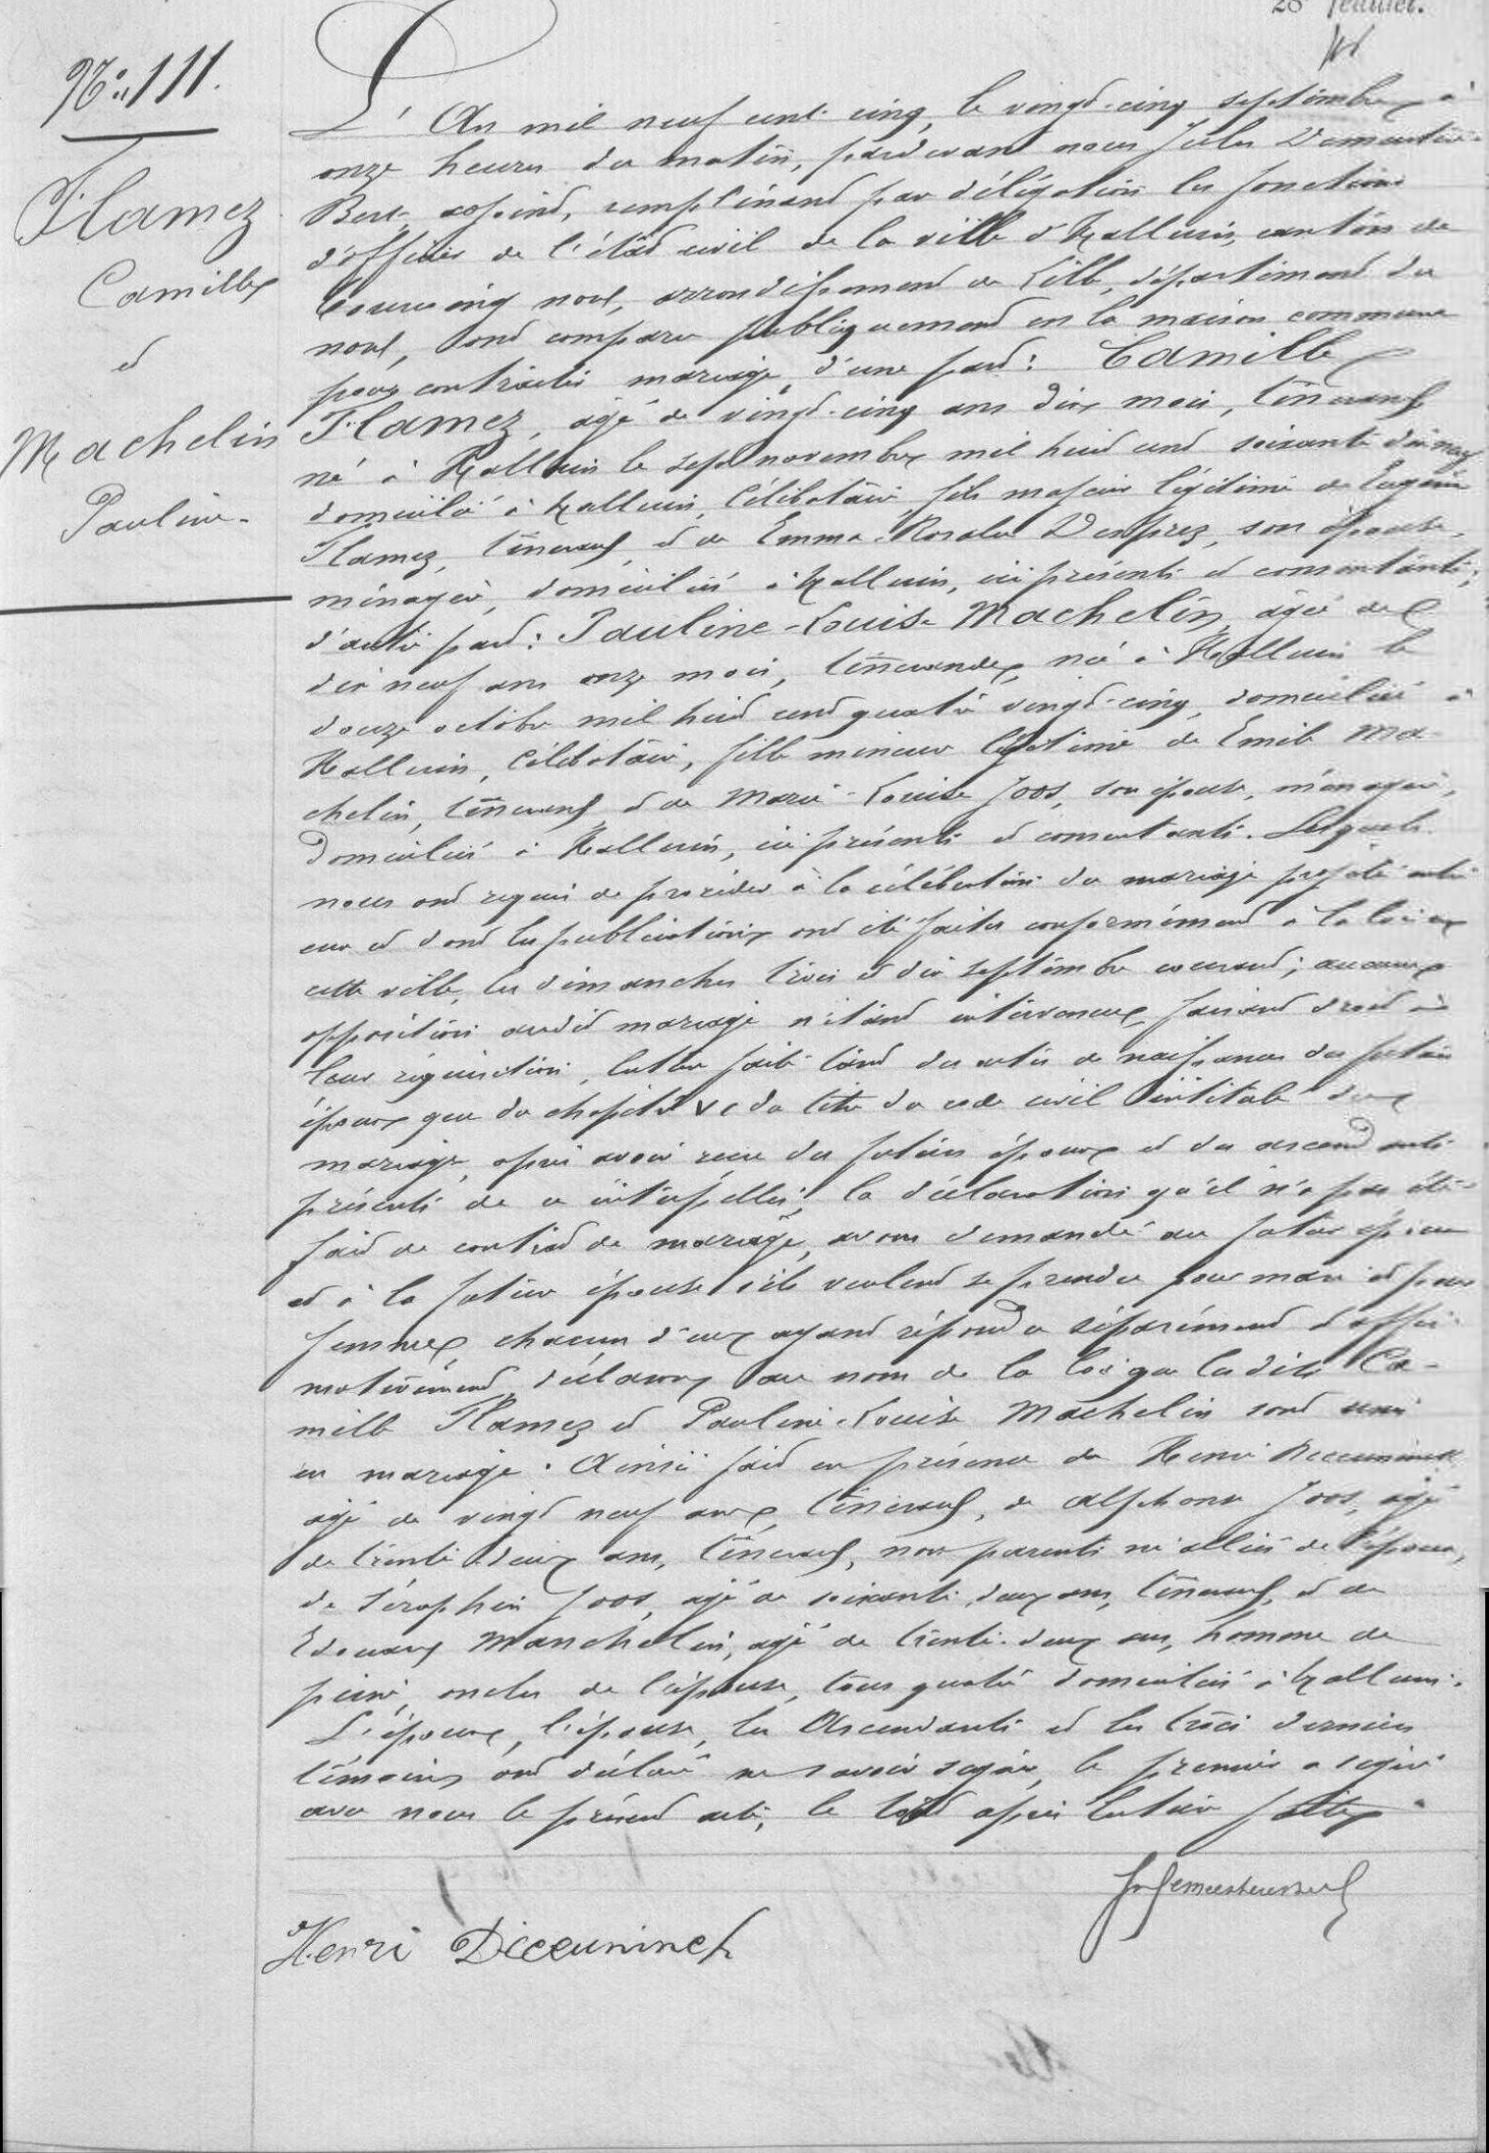 28e feuillet.
No. 111.
Flamez
Camille
et
Machelin
Pauline.
L'An mil neuf cent cinq, le vingt-cinq septembre à
onze heures du matin, pardevant nous Jules Demeestere-
Bert, adjoint, remplissant par délégation les fonctions
d'officier de l'état civil de la ville d'Halluin, canton de
Tourcoing nord, arrondissement de Lille, département du
nord, ont comparu publiquement en la maison commune
pour contracter mariage, d'une part: Camille
Flamez, âgé de vingt-cinq ans dix mois, tisserand
né à Halluin le sept novembre mil huit cent soixante dix neuf
domicilié à Halluin, célibataire, fils majeur légitime de Eugène
Flamez, tisserand, et de Emma-Rosalie Desprez, son épouse,
ménagère, domiciliés à Halluin, ici présents et consentants;
d'autre part: Pauline-Louise Machelin, âgée de
dix neuf ans onze mois, tisserande, née à Halluin le
douze octobre mil huit cent quatre vingt-cinq, domiciliée à
Halluin, célibataire, fille mineure légitime de Emile Ma-
chelin, tisserand, et de Marie-Louise Joos, son épouse, ménagère,
domiciliés à Halluin, ici présents et consentants. Lesquels
nous ont requis de procéder à la célébration du mariage projeté entre
eux et dont les publications ont été faites conformément à la loi en
cette ville, les dimanches trois et dix septembre courant; aucune
opposition audit mariage n'étant intervenue, faisant droit à
leur réquisition, lecture faite tant des actes de naissance des futurs
époux que du chapitre VI du titre du code civil intitulé du
mariage, après avoir reçu des futurs époux et des ascendants
présents de ce interpellés, la déclaration qu'il n'a pas été
fait de contrat de mariage, avons demandé au futur époux
et à la future épouse s'ils veulent se prendre pour mari et pour
femme, chacun d'eux ayant répondu séparément et affir-
mativement, déclarons au nom de la loi que lesdits Ca-
mille Flamez et Pauline-Louise Machelin sont unis
en mariage. Ainsi fait en présence de Henri Deceuninck
âgé de vingt neuf ans, tisserand, de Alphonse Joos, âgé
de trente deux ans, tisserand, non parents ni alliés de l'époux,
de Séraphin Joos, âgé de soixante deux ans, tisserand, et de
Edouard Manchelin, âgé de trente-deux ans, homme de
peine, oncles de l'épouse, tous quatre domiciliés à Halluin.
L'époux, l'épouse, les Ascendants et les trois derniers
témoins ont déclaré ne savoir signer, le premier a signé
avec nous le présent acte, le tout après lecture faite.
Henri Diceuninck